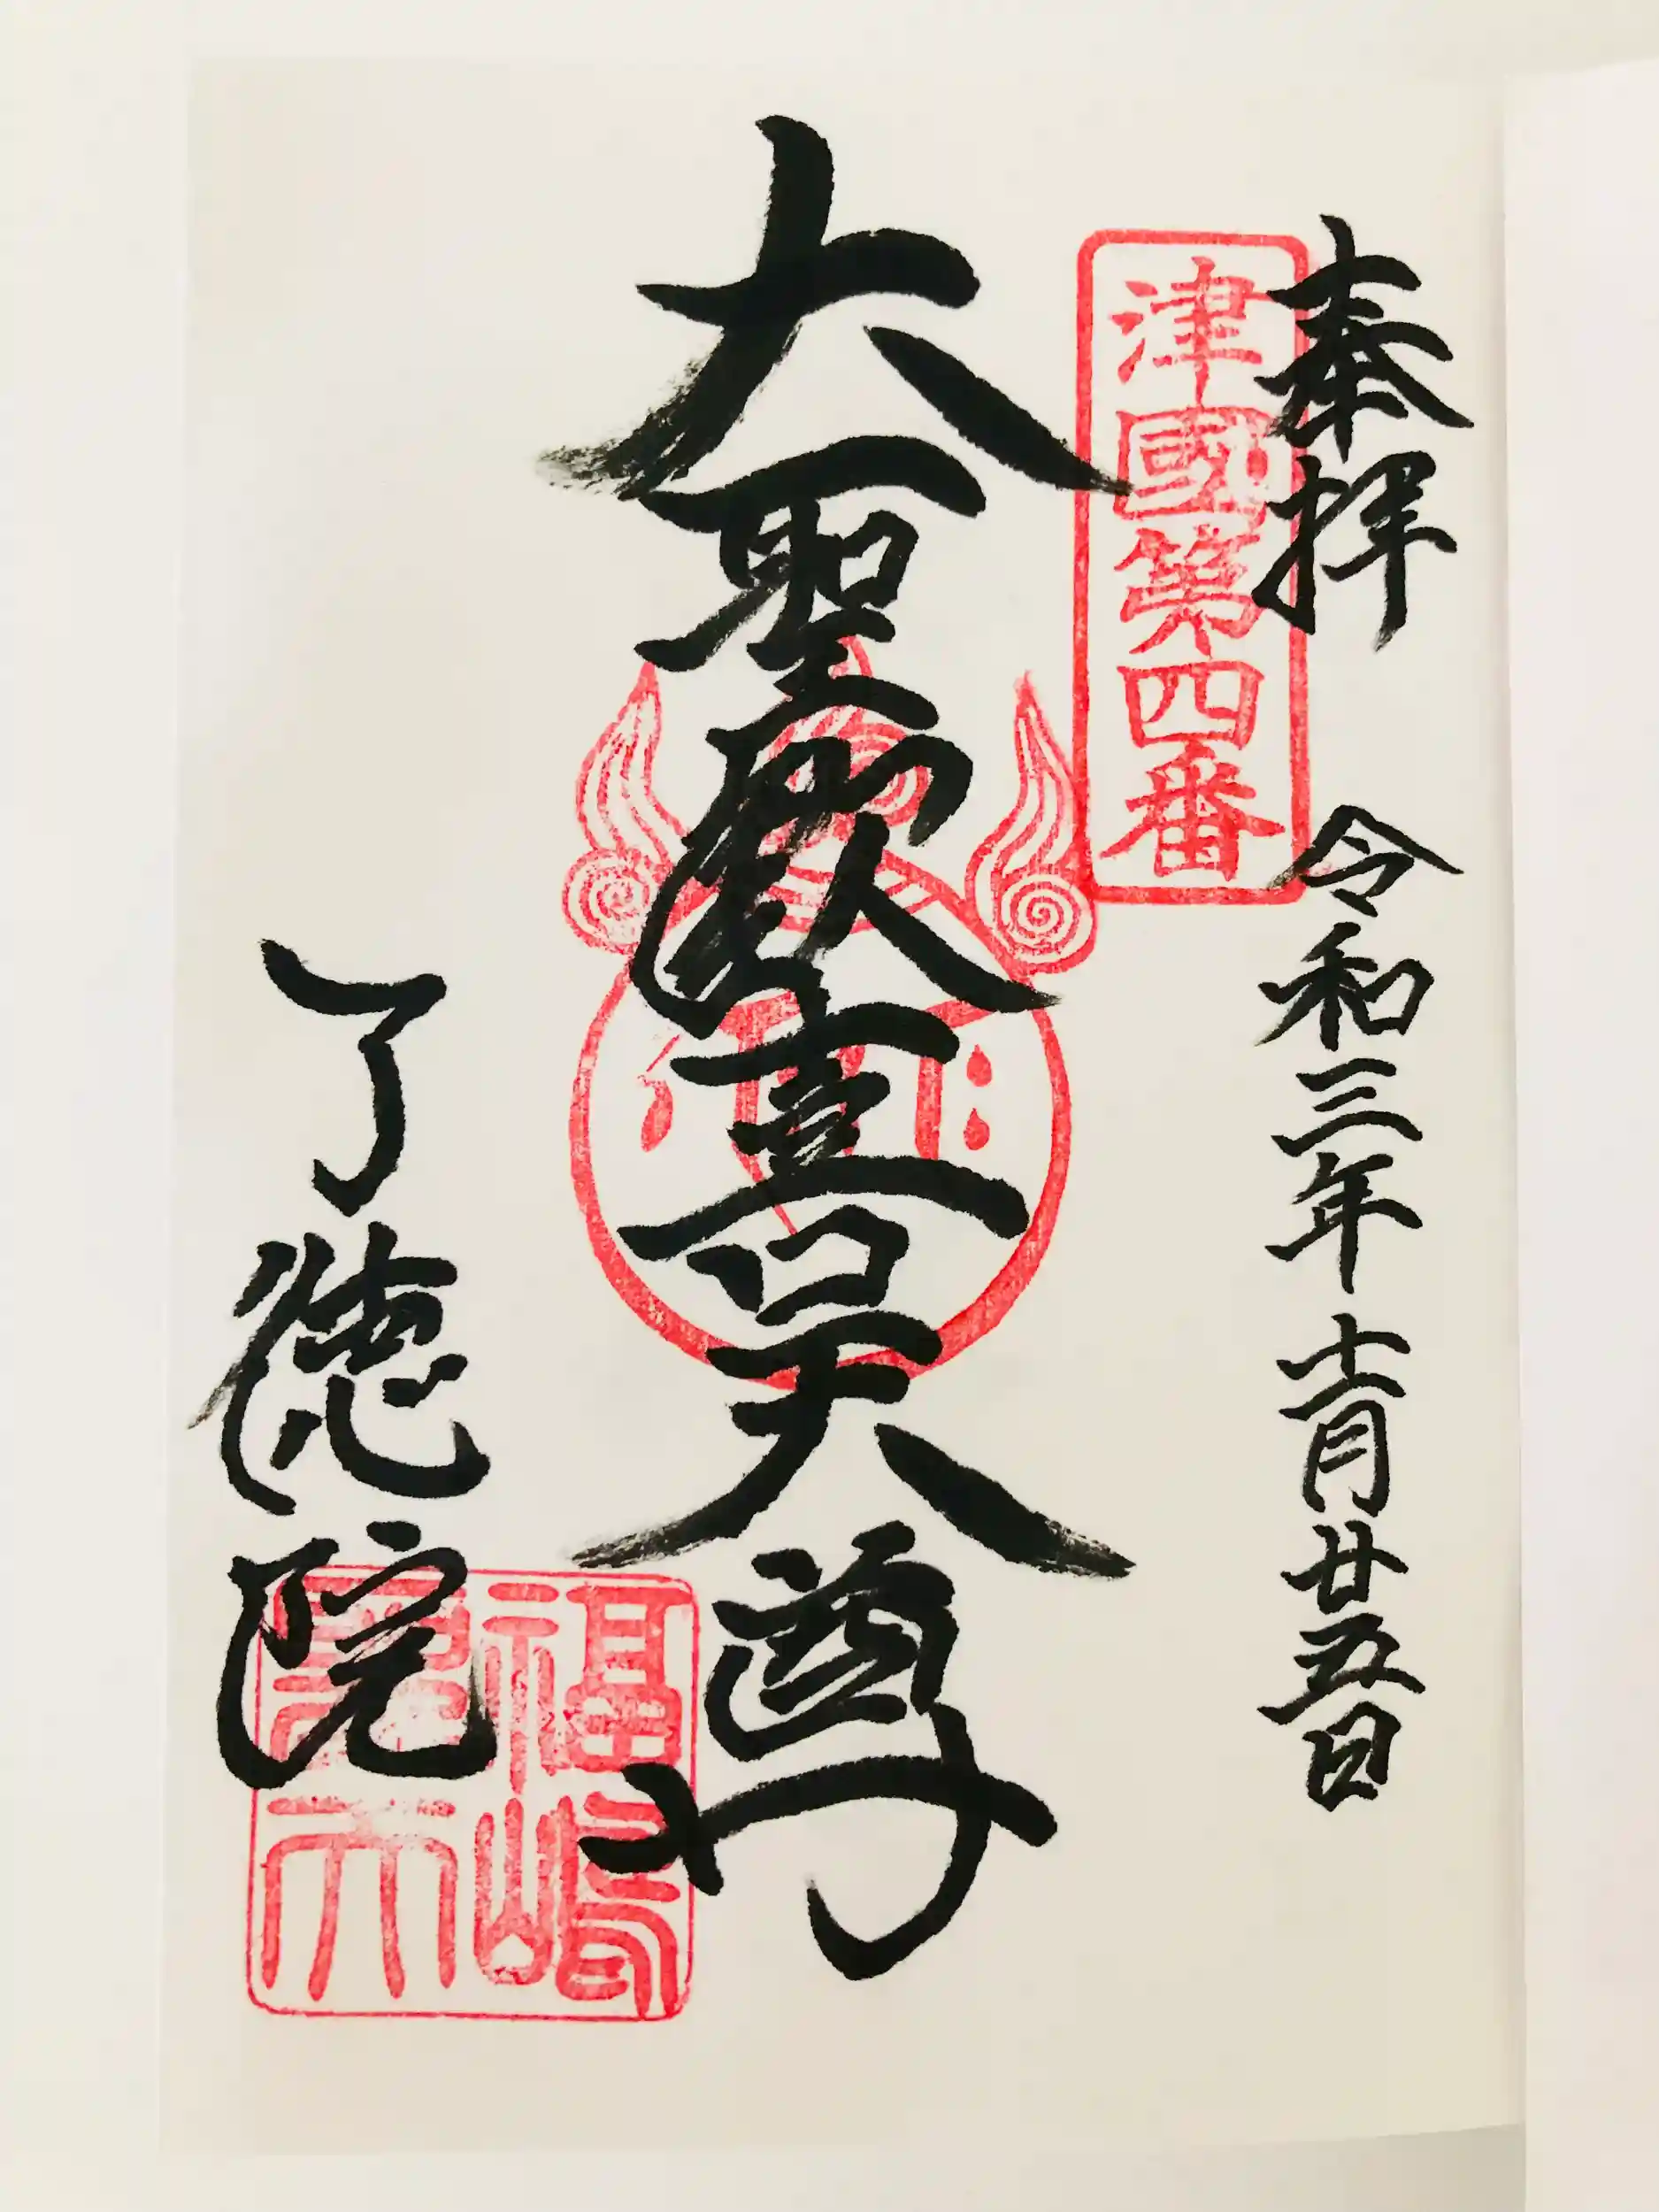 奉拝 令和三年十一月廿五日
津國第四番
大聖歓喜天尊
了徳院
福嶋
聖天